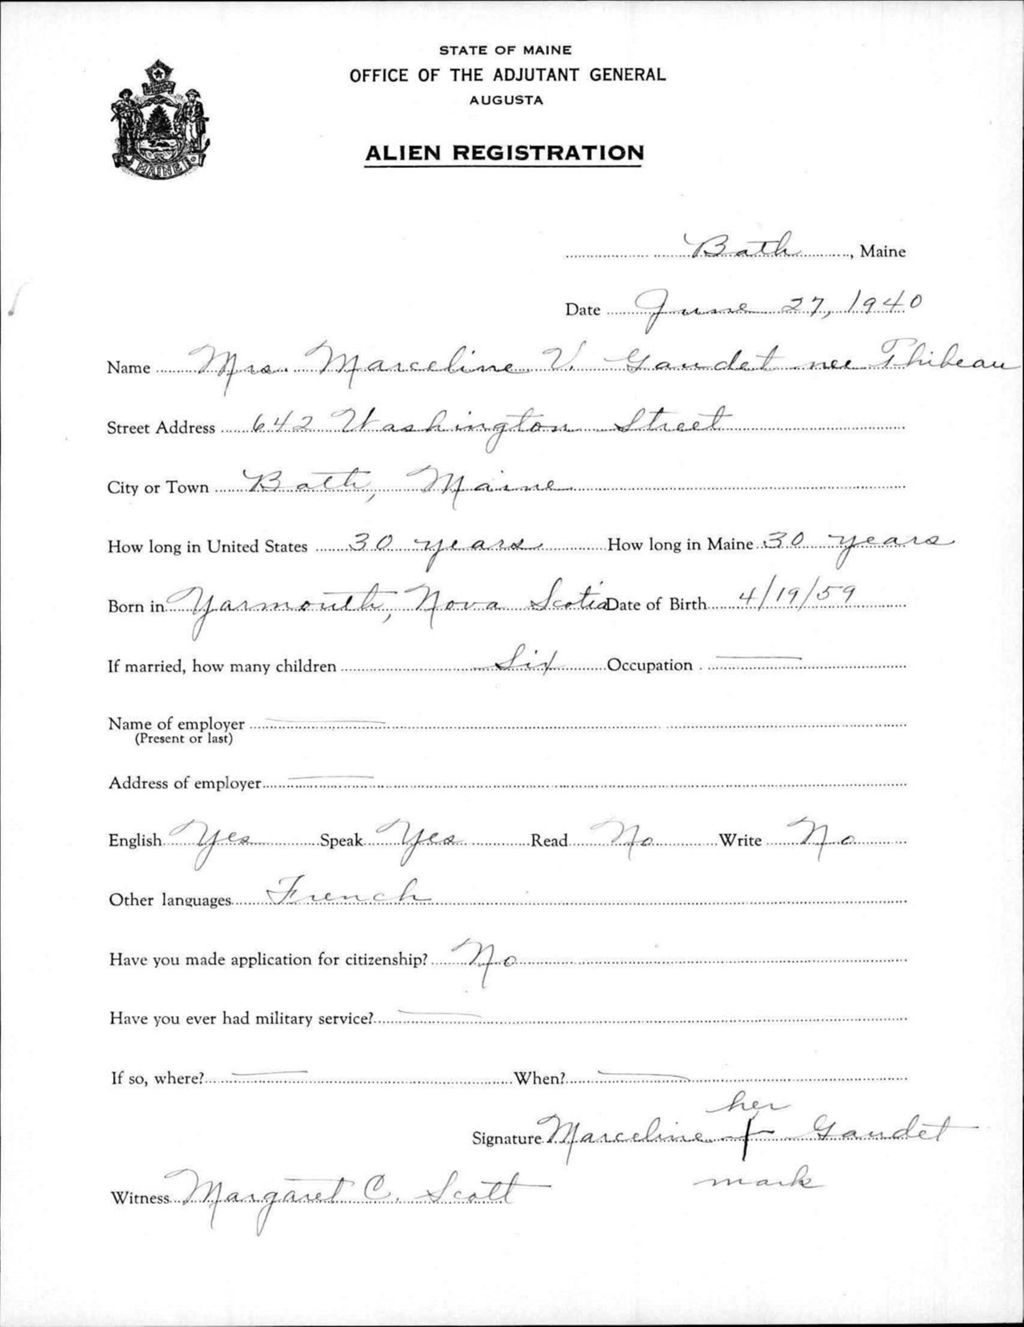 STATE OF MAINE
OFFICE OF THE ADJUTANT GENERAL
AUGUSTA
ALIEN REGISTRATION
MAINE
Bath, Maine
Date June 27, 1940
Name Mrs. Marceline V. Gaudet nee Thibeau
Street Address 642 Washington Street
City or Town Bath, Maine
How long in United States 30 years How long in Maine 30 years
Born in Yarmouth, Nova Scotia Date of Birth 4/19/59
If married, how many children Six Occupation —
Name of employer —
(Present or last)
Address of employer —
English Yes Speak Yes Read No Write No
Other languages French
Have you made application for citizenship? No
Have you ever had military service? —
If so, where? — When? —
her
Signature Marceline + Gaudet
mark
Witness Margaret C. Scott